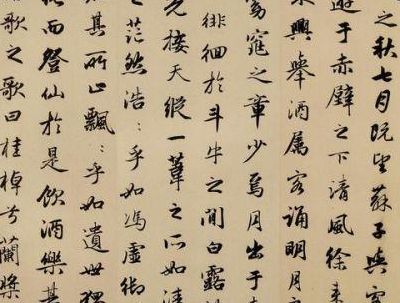 之秋七月既望蘇子與客
遊于赤壁之下清風徐來
興舉酒屬客誦明月
窈窕之章少焉月出于
徘徊於斗牛之間白露
光接天縱一葦之所如凌
茫然浩〻乎如馮虛御
其所止飄〻乎如遺世獨
而登仙於是飲酒樂甚
歌之歌曰桂棹兮蘭槳